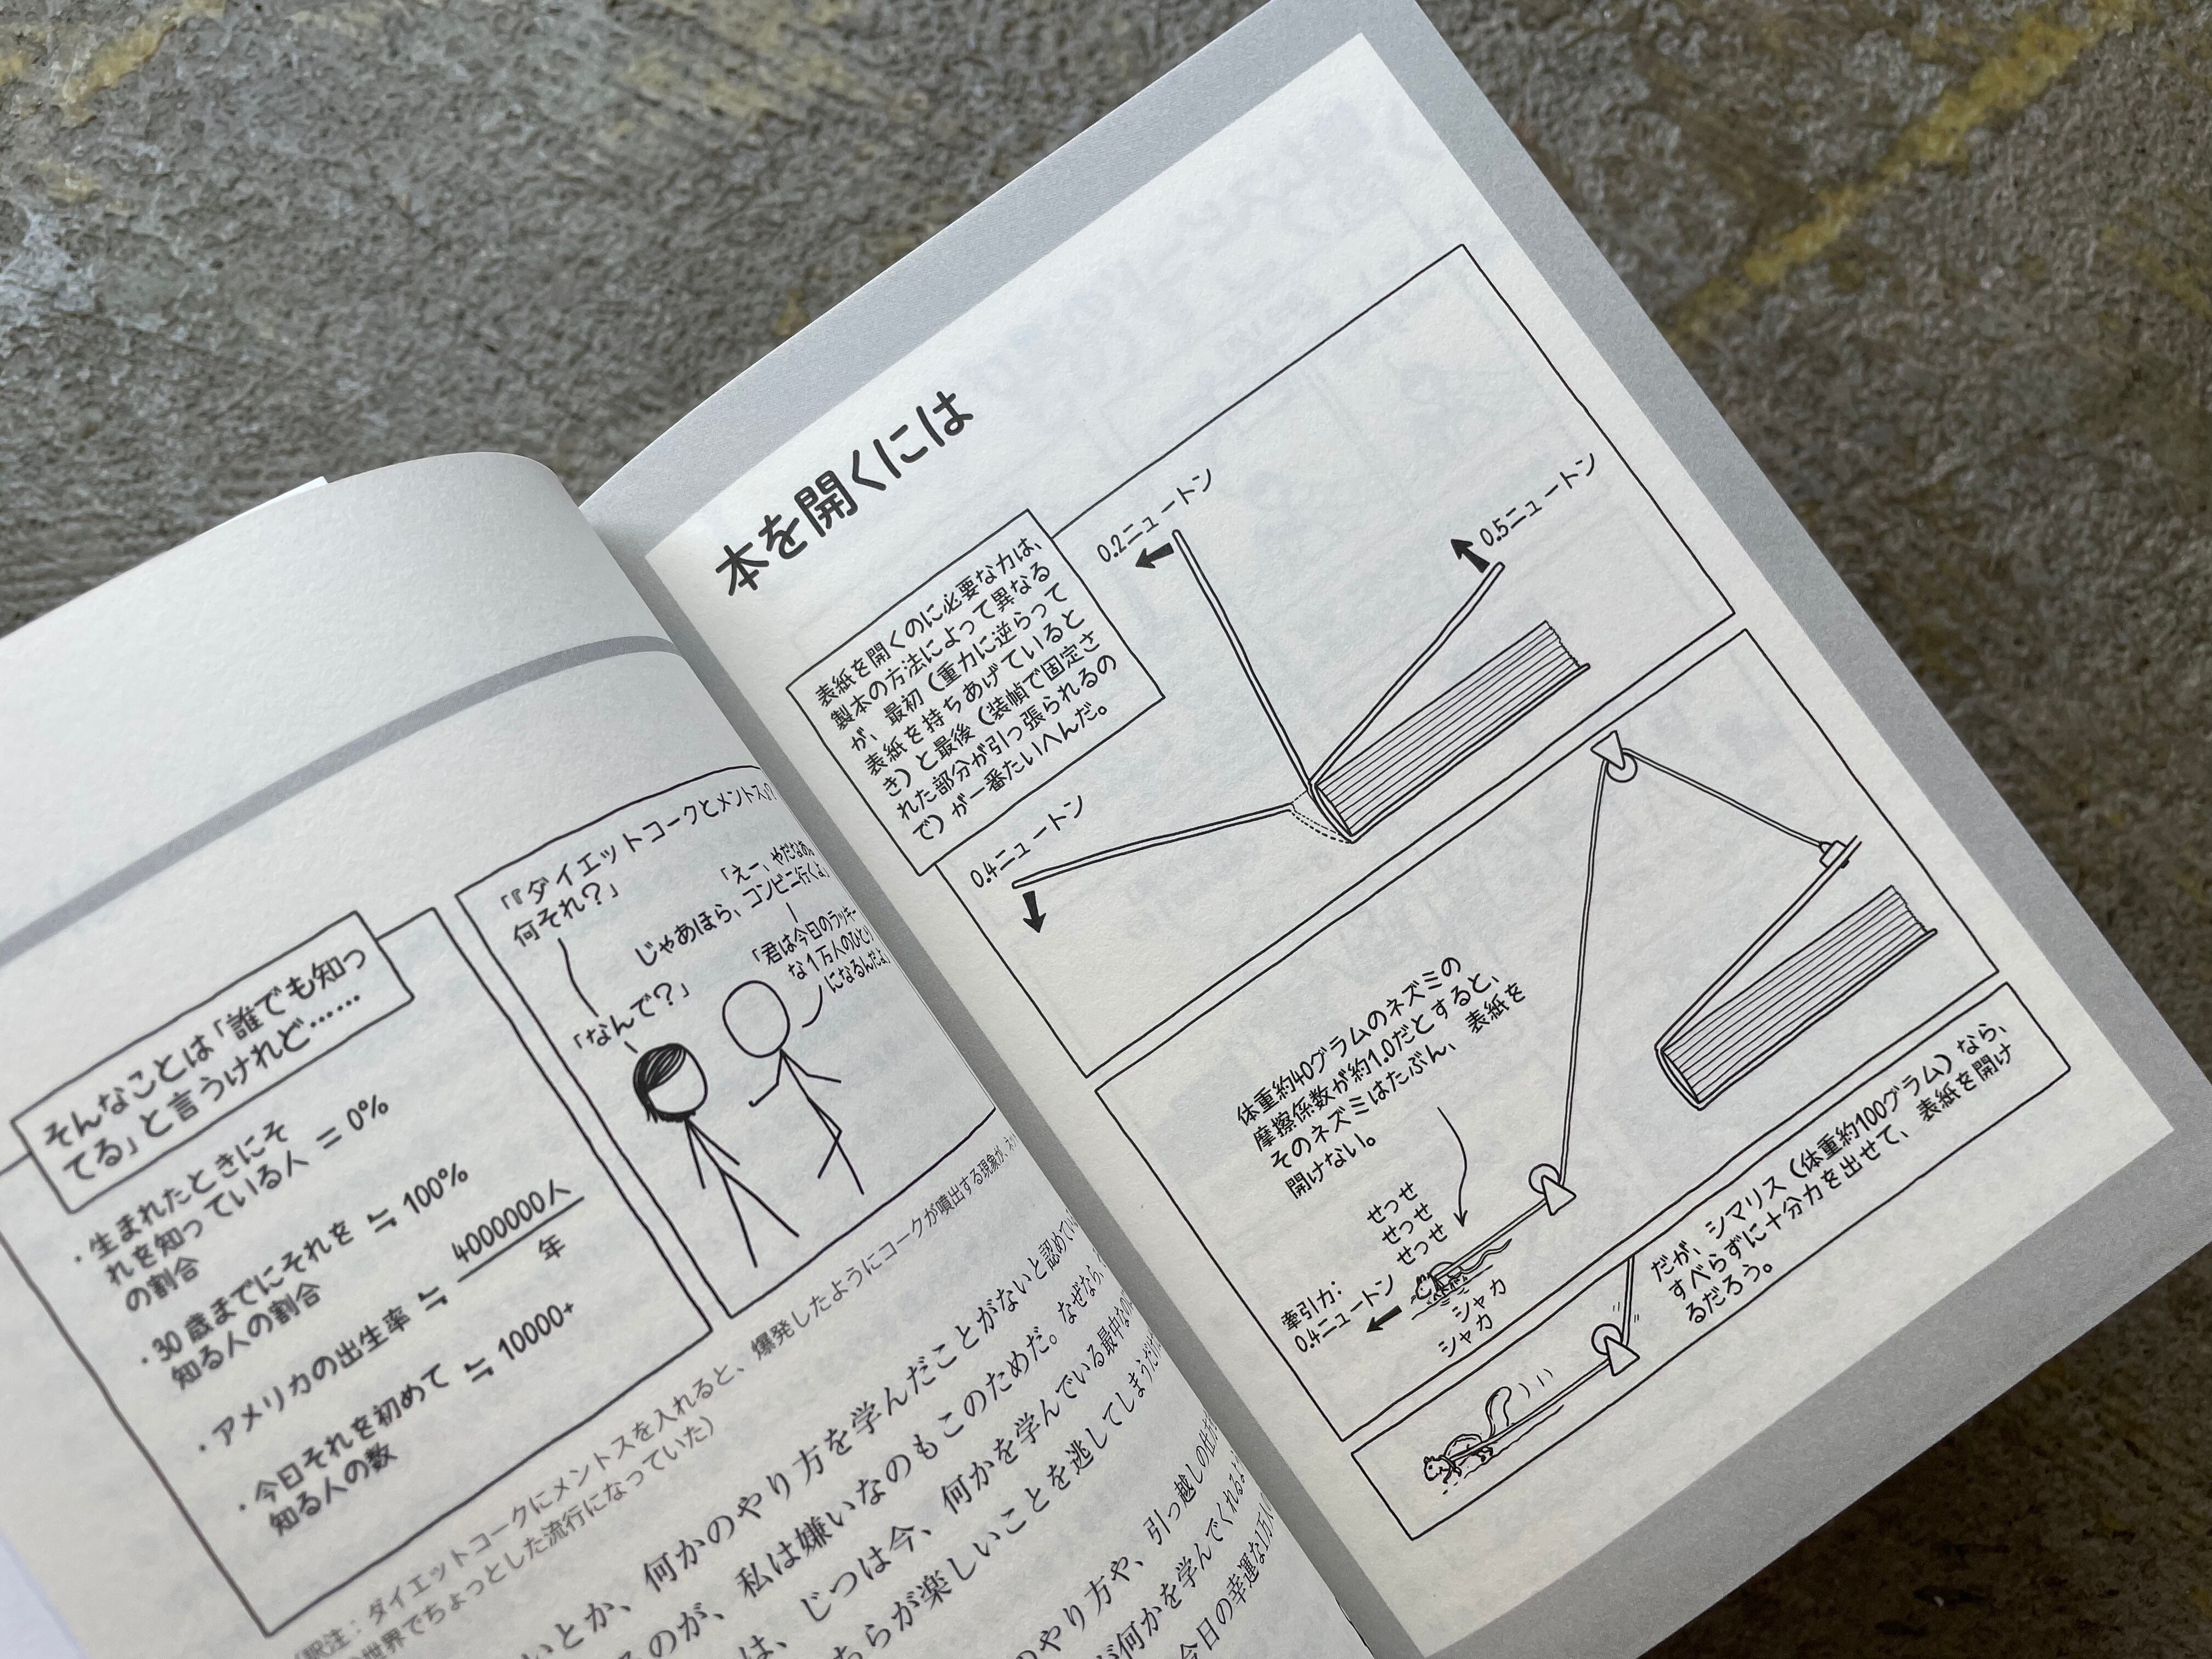 そんなことは「誰でも知っ
てる」と言うけれど……
・生まれたときにそ
れを知っている人 = 0%
の割合
・30歳までにそれを ≒ 100%
知る人の割合
・アメリカの出生率 ≒ 4000000人
年
・今日それを初めて ≒ 10000+
知る人の数
「『ダイエットコークとメントス』?
何それ?」
「えー、やだなあ。
じゃあほら、コンビニ行くよ」
「なんで?」
「君は今日のラッキー
な1万人のひとり
になるんだよ」
(訳注:ダイエットコークにメントスを入れると、爆発したようにコークが噴出する現象が、ネッ
の世界でちょっとした流行になっていた)
いとか、何かのやり方を学んだことがないと認めてい
るのが、私は嫌いなのもこのためだ。なぜなら、
は、じつは今、何かを学んでいる最中な
ちらが楽しいことを逃してしまうだけ
のやり方や、引っ越しの仕方
が何かを学んでくれるよ
今日の幸運な1万人
本を開くには
表紙を開くのに必要な力は、
製本の方法によって異なる
が、最初(重力に逆らって
表紙を持ちあげていると
き)と最後(装幀で固定さ
れた部分が引っ張られるの
で)が一番たいへんだ。
0.2ニュートン
0.5ニュートン
0.4ニュートン
体重約40グラムのネズミの
摩擦係数が約1.0だとすると、
そのネズミはたぶん、表紙を
開けない。
せっせ
せっせ
せっせ
牽引力:
0.4ニュートン
シャカ
シャカ
だが、シマリス(体重約100グラム)なら、
すべらずに十分力を出せて、表紙を開け
るだろう。